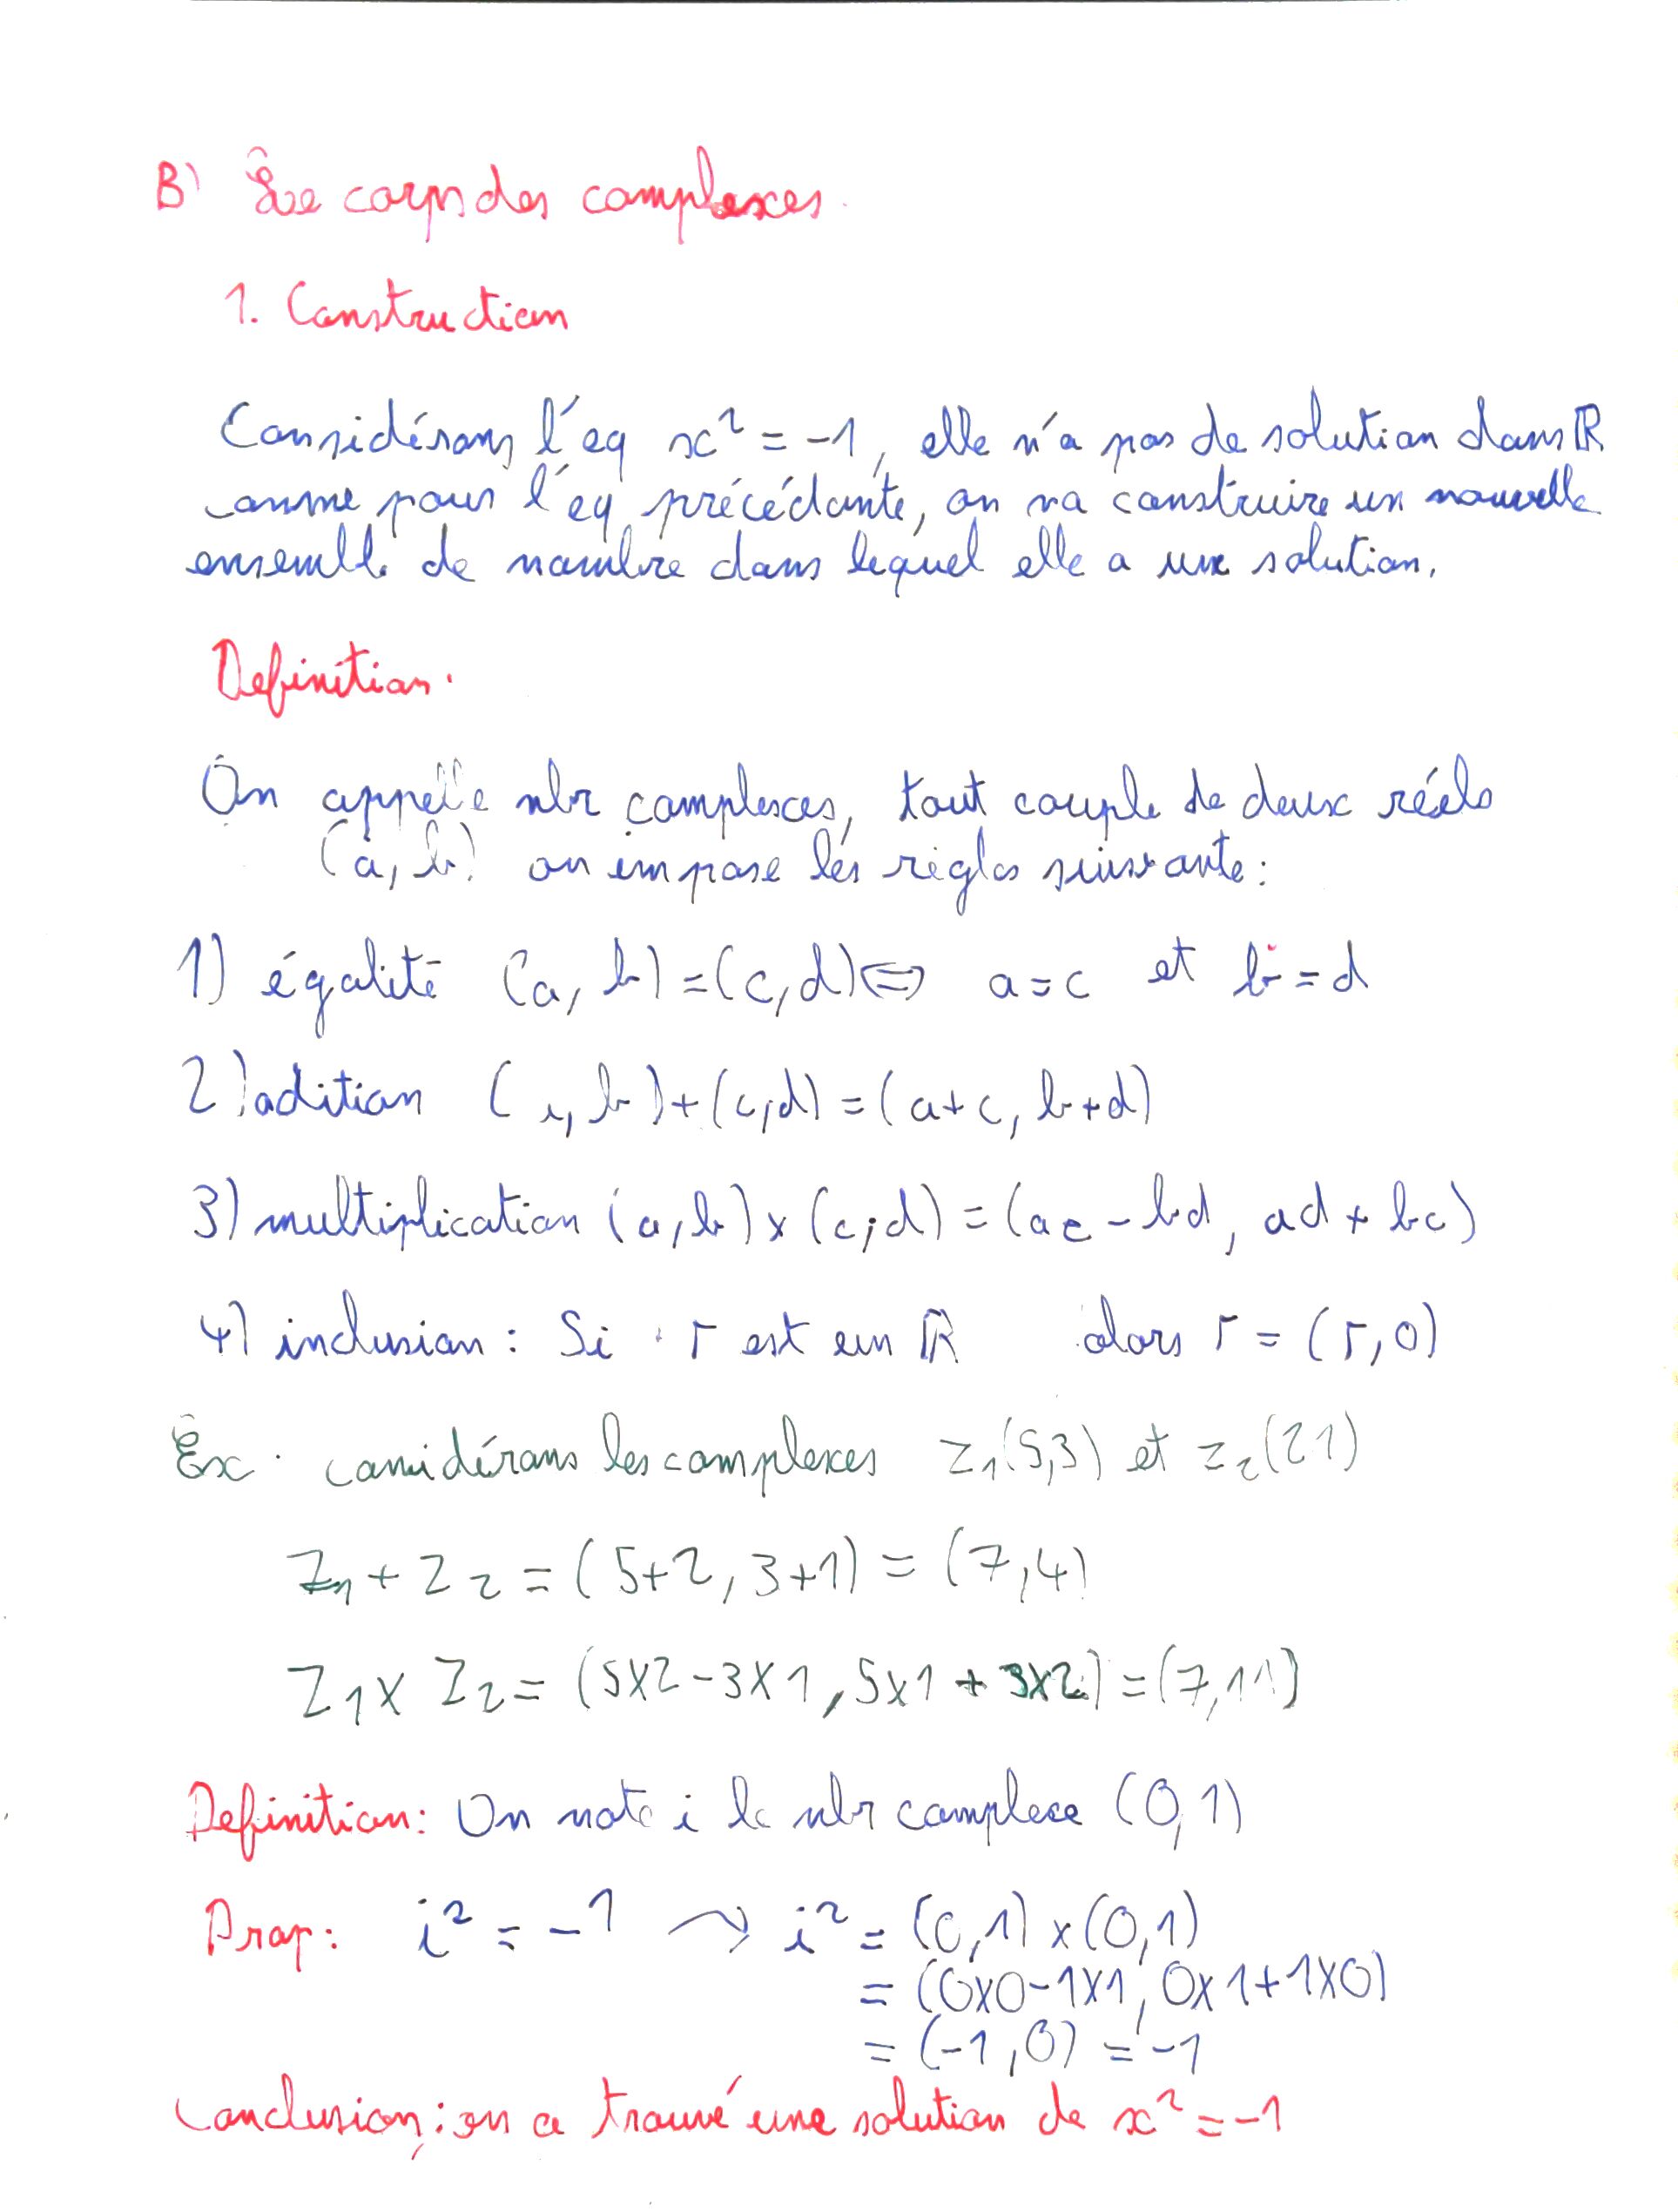 B) Le corps des complexes.
1. Construction
Considérons l'eq x² = -1, elle n'a pas de solution dans ℝ
comme pour l'eq précédante, on va construire un nouvelle
ensemble de nombre dans lequel elle a une solution.
Definition.
On appelle nbr complexes, tout couple de deux réels
(a, b) on impose les règles suivante :
1) égalité (a, b) = (c, d) ⇔ a = c et b = d
2) adition (a, b) + (c, d) = (a+c, b+d)
3) multiplication (a, b) x (c, d) = (ac - bd, ad + bc)
4) inclusion : Si r est un ℝ alors r = (r, 0)
Ex. considérons les complexes z₁(5,3) et z₂(2 1)
Z₁ + Z₂ = (5+2, 3+1) = (7,4)
Z₁ x Z₂ = (5x2 - 3x1, 5x1 + 3x2) = (7,11)
Definition : On note i le nbr complexe (0,1)
Prop : i² = -1 → i² = (0,1) x (0,1)
= (0x0 - 1x1, 0x1 + 1x0)
= (-1, 0) = -1
Conclusion : on a trouvé une solution de x² = -1